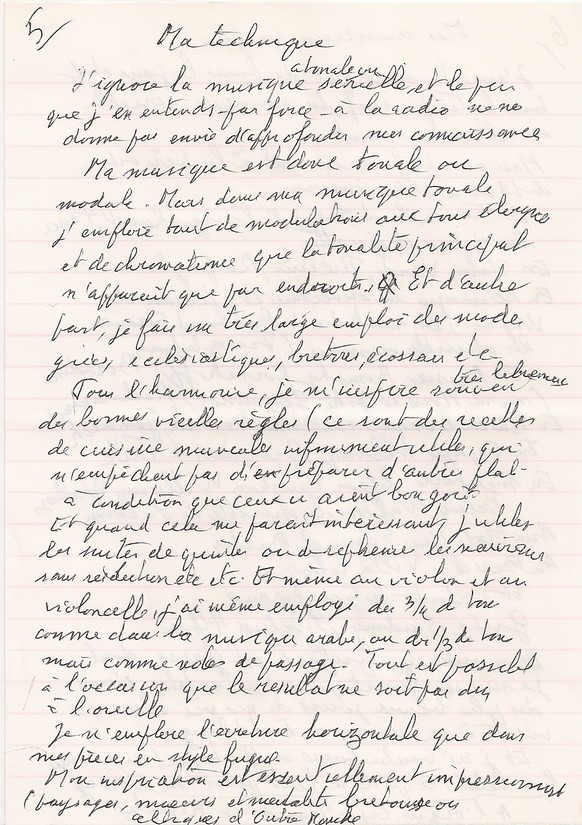 5/
Ma technique
atonale ou
J'ignore la musique sérielle, et le peu
que j'en entends - par force - à la radio ne me
donne pas envie d'approfondir mes connaissances
Ma musique est donc tonale ou
modale. Mais dans ma musique tonale
j'emploie tant de modulations aux tons éloignés
et de chromatisme que la tonalité principal
n'apparaît que par endroits. Et d'autre
part, je fais un très large emploi des modes
grecs, ecclésiastique, bretons, écossais etc
très librement
Tous l'harmonie, je m'inspire souvent
des bonnes vieilles règles (ce sont des recettes
de cuisine musicales infiniment utiles, qui
n'empêchent pas d'en préparer d'autres plat-
à condition que ceux-ci aient bon goût.
Et quand cela me paraît intéressant, j'utilise
les suites de quinte ou de septième
sans résolution etc etc. Et même au violon et au
violoncelle, j'ai même employé des 3/4 d ton
comme dans la musique arabe, ou de 1/3 de ton
mais comme notes de passage. Tout est possible
à l'occasion que le resultat ne soit pas dur
à l'oreille
Je n'emploie l'écriture horizontale que dans
mes pièces en style fugué.
Mon inspiration est essentiellement impressionnist
(paysages, moeurs et mentalité bretonne ou
celtiques d'Outre Manche